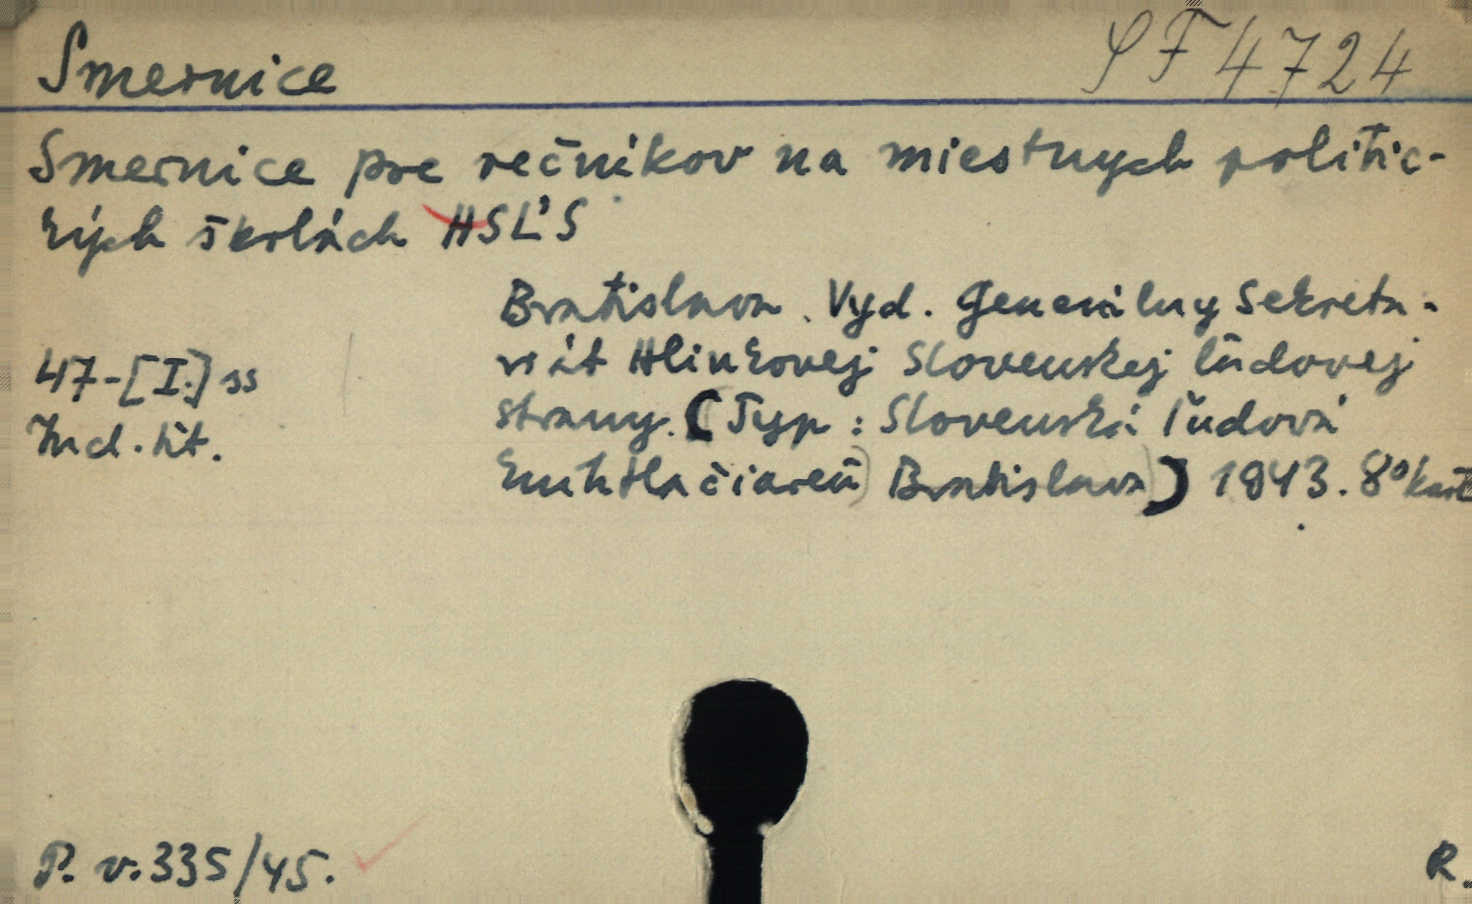 Smernice SF 4724
Smernice pre rečníkov na miestnych politic-
kých školách HSĽS
Bratislava. Vyd. Generálny Sekreta-
riát Hlinkovej Slovenskej ľudovej
47-[I.] ss
strany. (Typ: Slovenská ľudová
Incl. tit.
kníhtlačiareň) Bratislava) 1943. 8° kart
P. v. 335/45.
R.